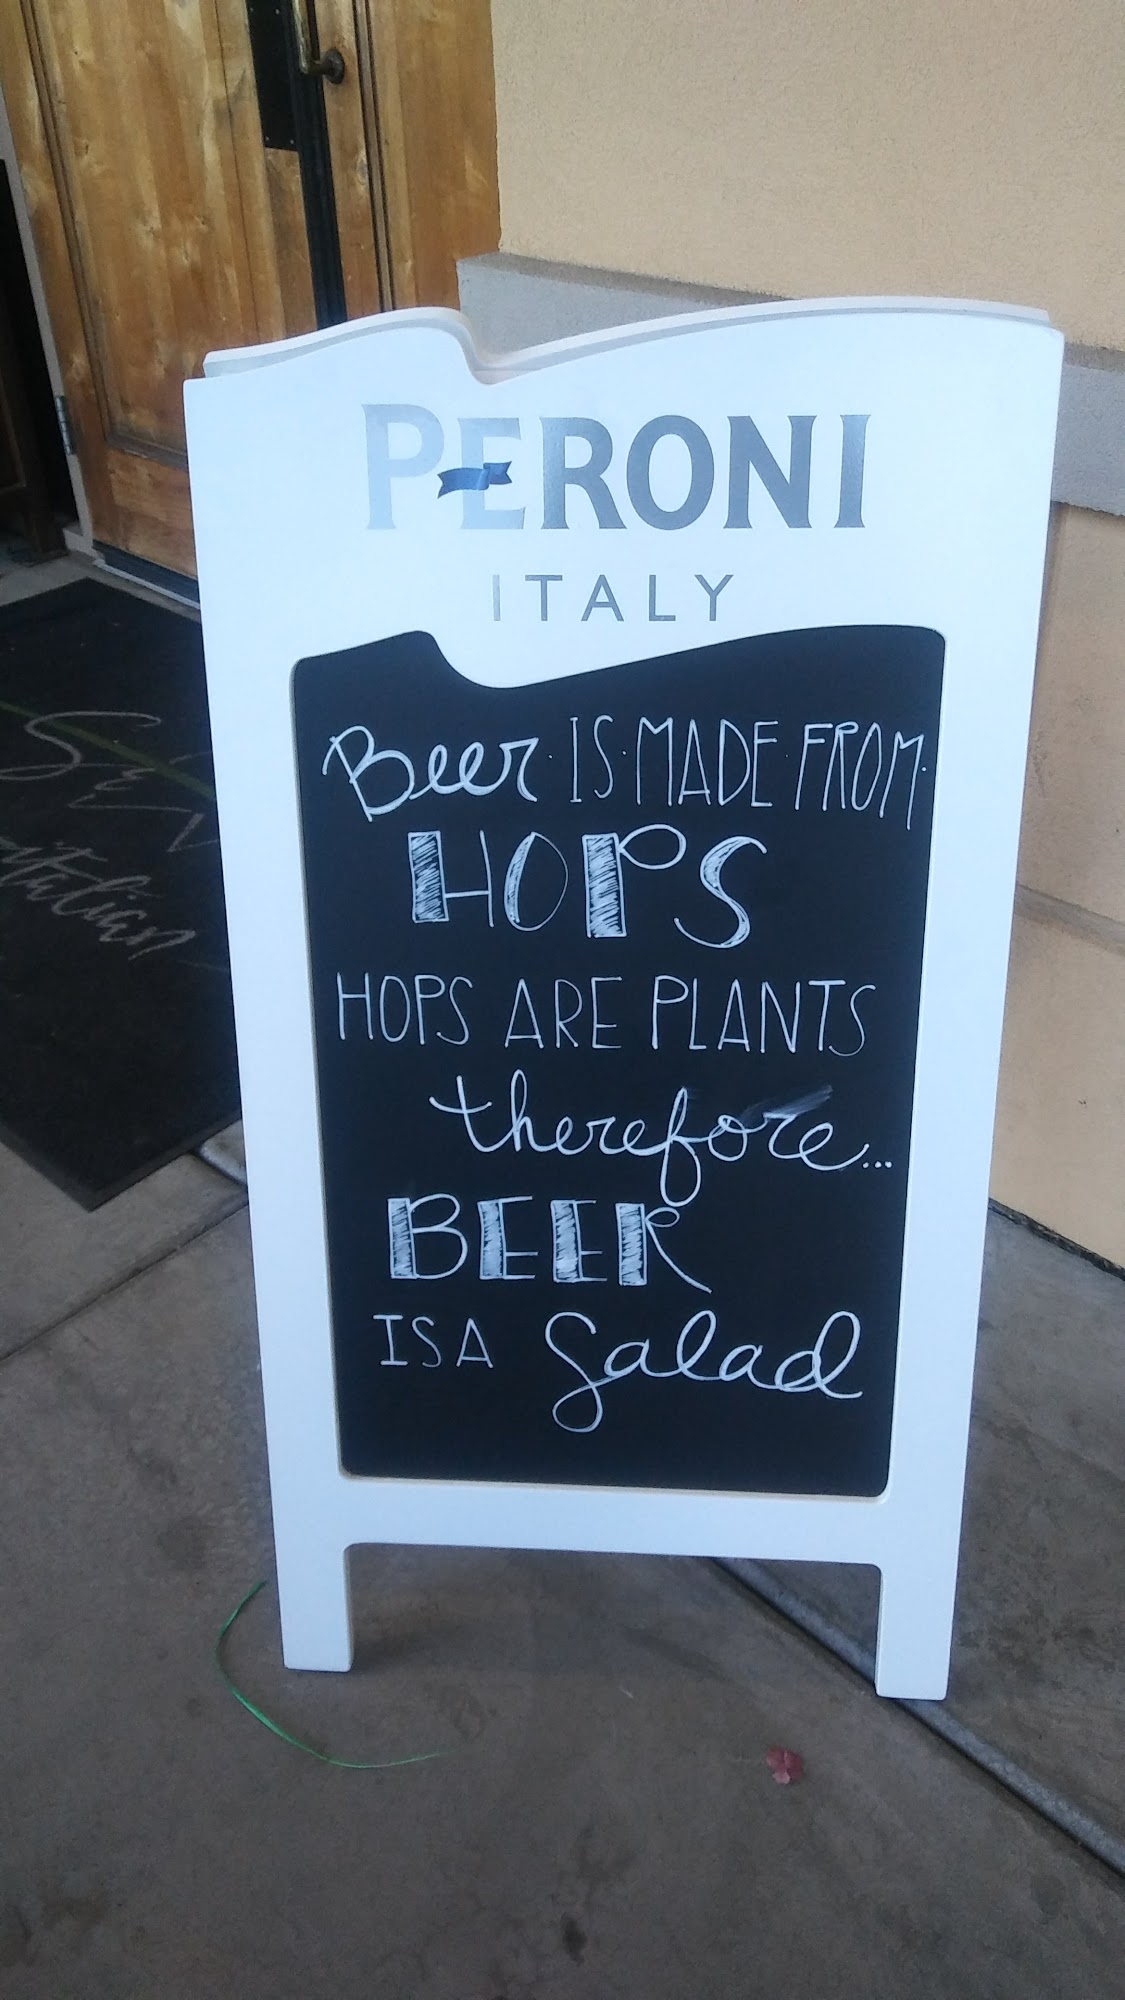 PERONI
ITALY
Beer · IS · MADE · FROM ·
HOPS
HOPS ARE PLANTS
therefore...
BEER
IS A Salad
italian